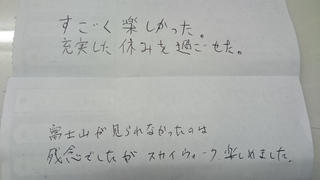 すごく楽しかった。
充実した休みを過ごせた。
富士山が見られなかったのは
残念でしたがスカイウォーク楽しめました。